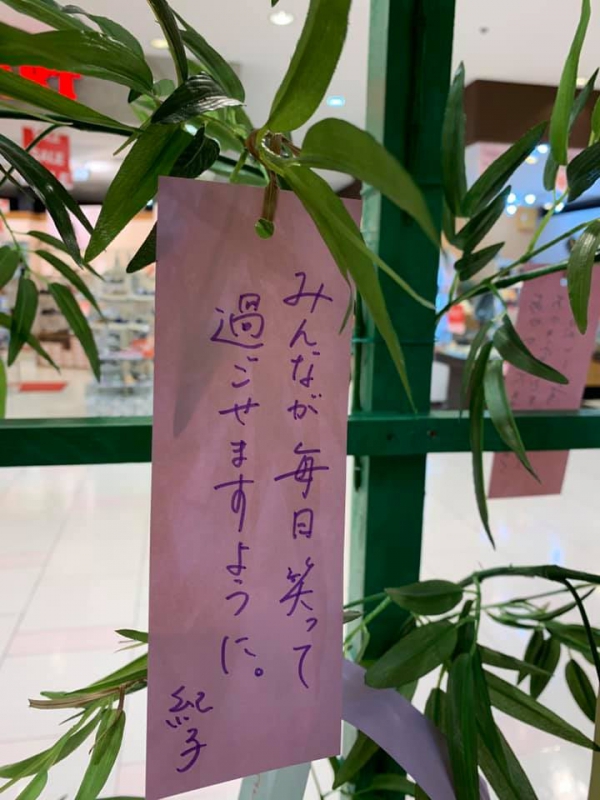 みんなが毎日笑って
過ごせますように。
紀子
SALE